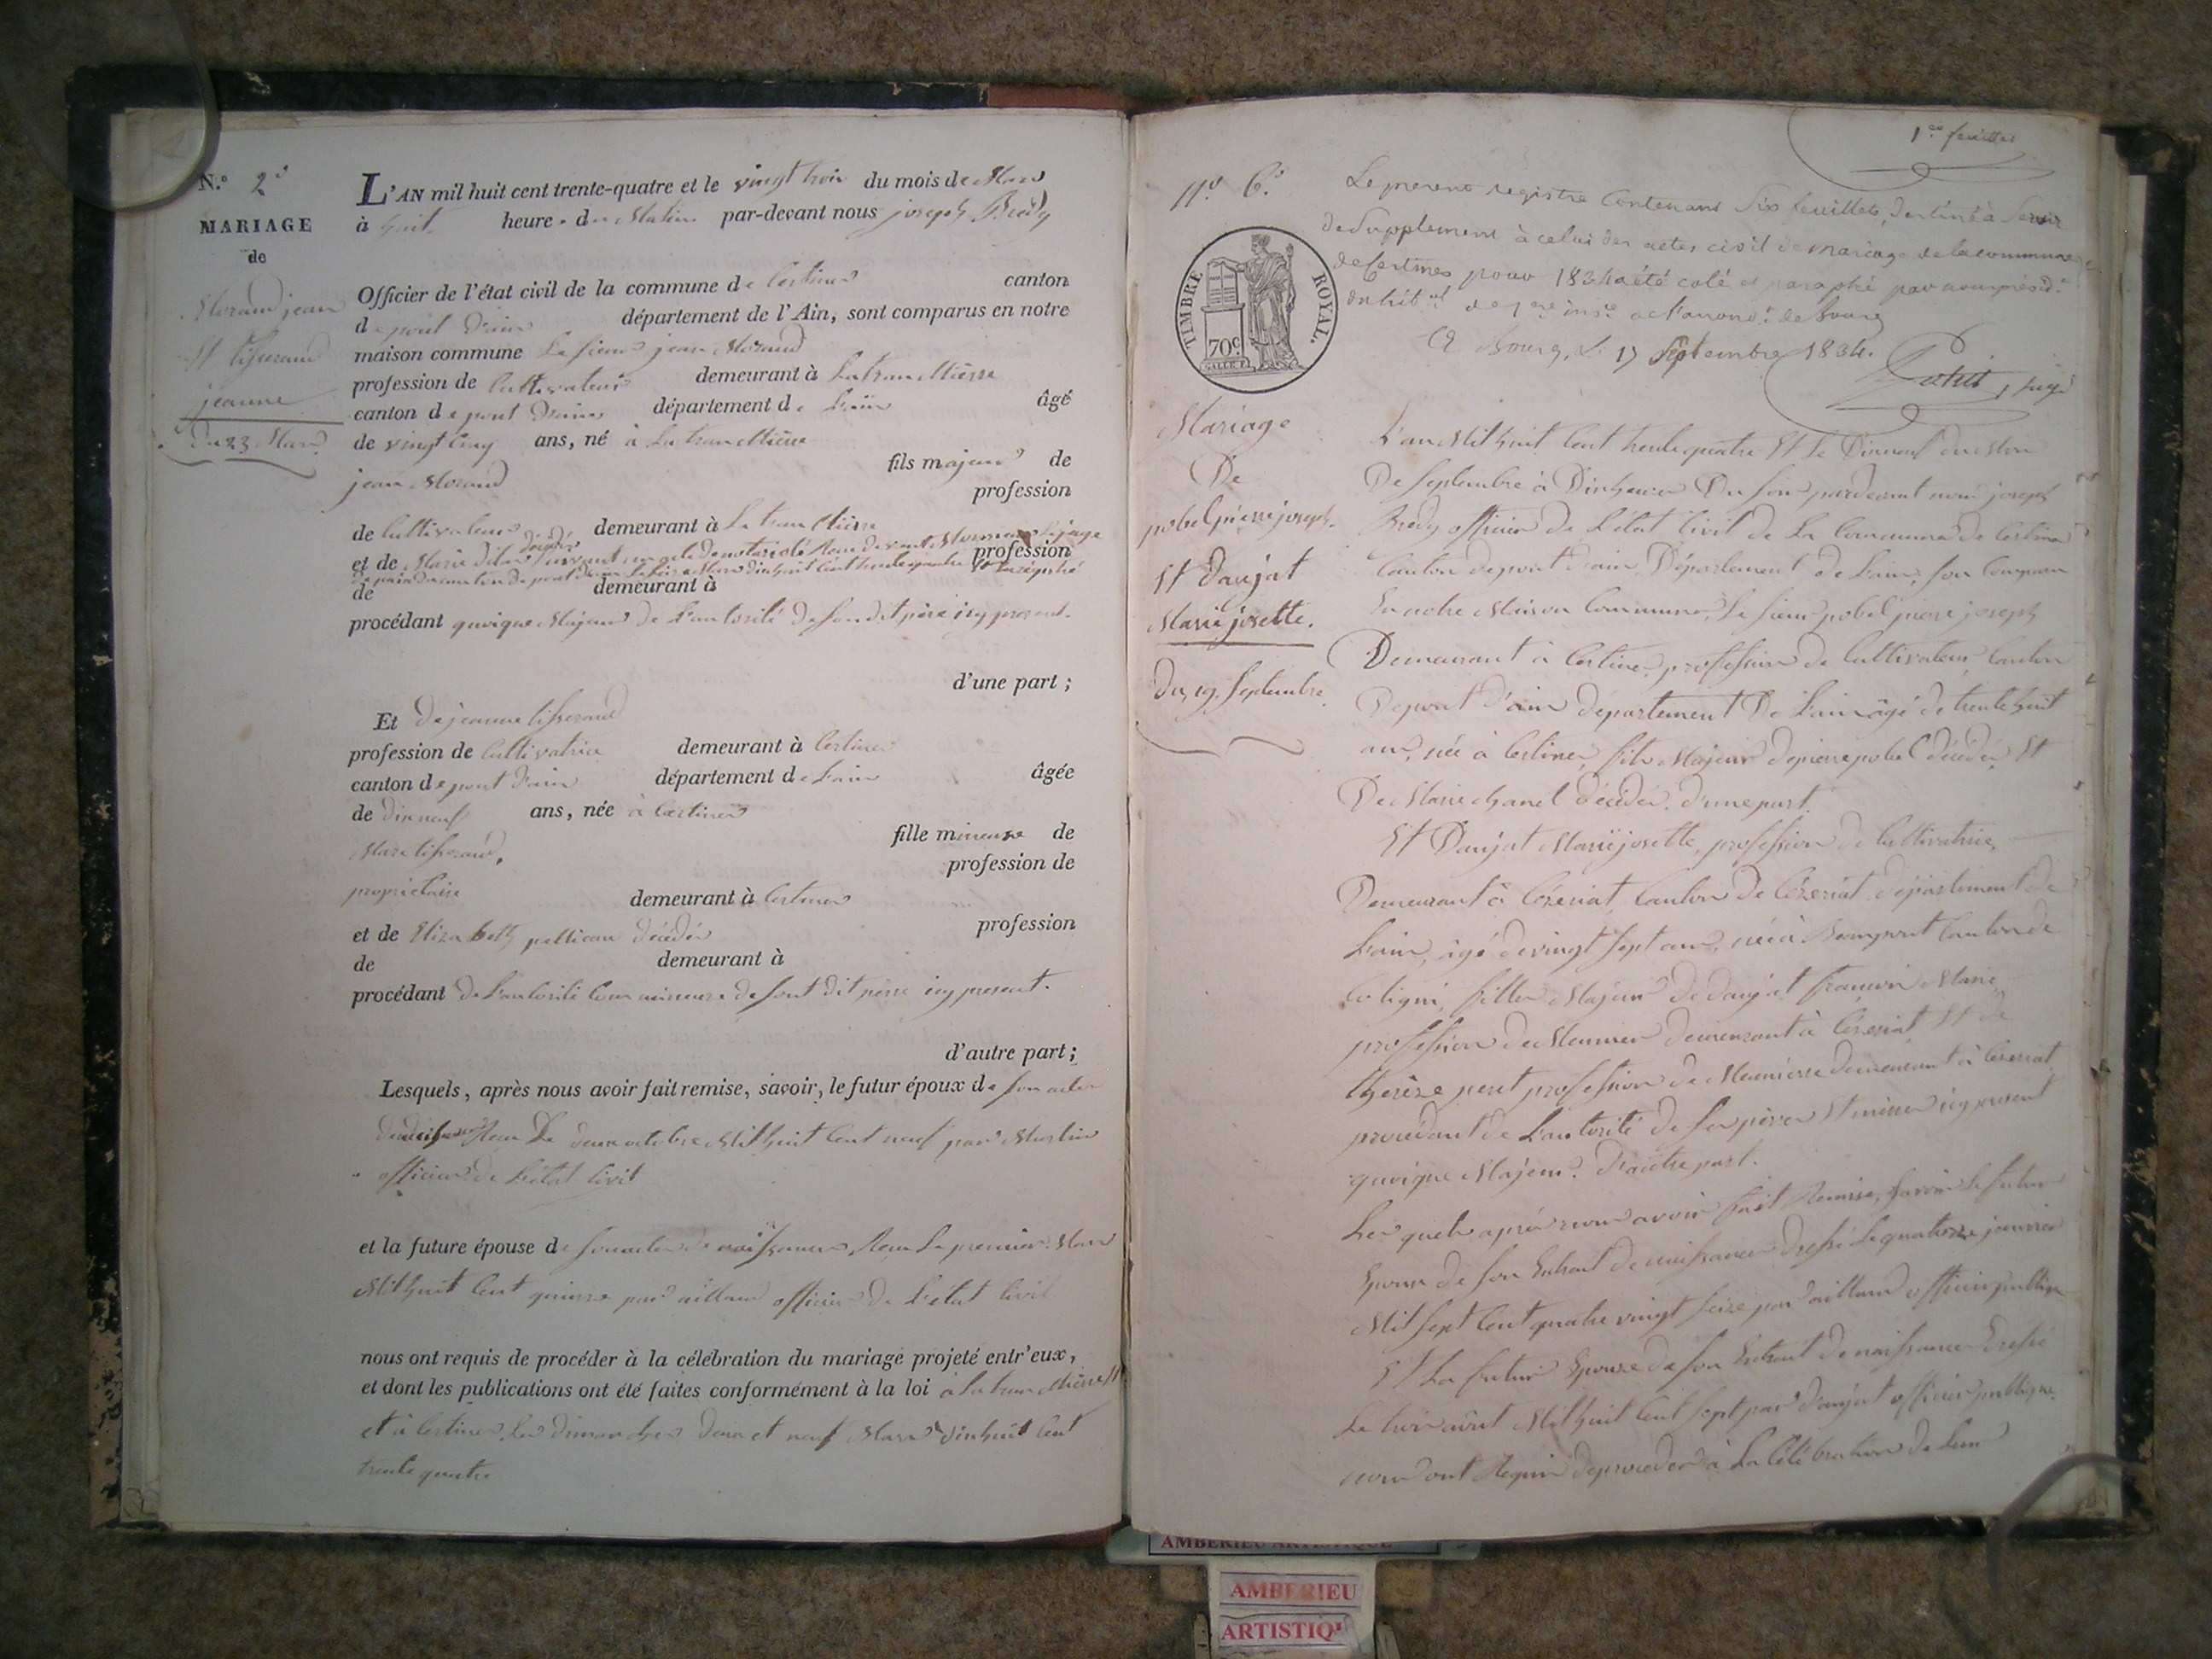 N.º 2.
MARIAGE
de
Morand jean
Et tisserand
jeanne
du 23 Mars
L'AN mil huit cent trente-quatre et le vingt trois du mois de Mars
à huit heure. du Matin par-devant nous joseph Brédy
Officier de l'état civil de la commune de Certines canton
de pont d'ain département de l'Ain, sont comparus en notre
maison commune Le sieur jean Morand
profession de Cultivateur demeurant à La tranclière
canton de pont d'ain département de L'ain âgé
de vingt Cinq ans, né à La tranclière
fils majeur de
jean Morand profession
de Cultivateur demeurant à La tranclière
et de Marie décédée profession
de demeurant à
procédant quoique Majeur de L'autorité de son dit père icy present.
d'une part ;
Et de jeanne tisserand
profession de Cultivatrice demeurant à Certines
canton de pont d'ain département de L'ain âgée
de dix neuf ans, née à Certines
fille mineure de
Marc tisserand, profession de
proprietaire demeurant à Certines
et de Elizabeth pellican décédée profession
de demeurant à
procédant de L'autorité Comme mineure de sont dit père icy present.
d'autre part ;
Lesquels, après nous avoir fait remise, savoir, le futur époux de son acte
de naissance Reçu Le deux octobre Mil huit Cent neuf par Martin
officier de L'état Civil
et la future épouse de son acte de naissance Reçu Le premier Mars
Mil huit Cent quinze par aillaud officier de L'état Civil
nous ont requis de procéder à la célébration du mariage projeté entr'eux,
et dont les publications ont été faites conformément à la loi à La tranclière
et à Certines Les dimanches deux et neuf Mars dixhuit Cent
trente quatre
1er feuillet
Nº 6.
Le present registre Contenant Six feuillets, destiné à Servir
de Supplement à celui des actes civil de mariage de la commune
de Certines pour 1834 a été coté et paraphé par nous presid.
du trib.al de 1ere ins.ce de l'arrond.t de Bourg
A Bourg, le 17 Septembre 1834.
juge
TIMBRE ROYAL.
70c.
Mariage
De
pobel pierre joseph.
Et Daujat
Marie josette.
Du 19. Septembre.
L'an Mil huit Cent trente quatre Et le Dixneuf du Mois
De Septembre à Dix heures Du Soir pardevant nous joseph
Brédy officier de L'état Civil de La Commune de Certines
Canton de pont d'ain Département de L'ain, son Comparu
En notre Maison Commune, Le sieur pobel pierre joseph
Demeurant à Certines profession de Cultivateur Canton
De pont d'ain département De L'ain âgé de trente huit
ans, née à Certines fils Majeur de pierre pobel décédé, Et
De Marie chanel décédée. d'une part.
Et Daujat Marie josette, profession de Cultivatrice,
Demeurant à Cézeriat, Canton de Cézeriat département de
L'ain, âgé de vingt sept ans, née à Beaupont Canton de
Coligni, fille Majeur de daujat françois Marie
profession de Meunier demeurant à Cézeriat Et de
therèse peret profession de Meunière demeurant à Cézeriat
procédant de L'autorité de ses père Et mère icy present
quoique Majeur. D'autre part.
Les quels après nous avoir fait Remise, savoir Le futur
Epoux de son Extrait de naissance dressé Le quatorze janvier
Mil sept Cent quatre vingt seize par aillaud officier publique
Et La futur Epouse de son Extrait De naissance dressé
Le trois aout Mil huit Cent sept par Daujat officier publique
nous ont Requis de procéder à La Célébration de Leur
AMBERIEU ARTISTIQUE
AMBERIEU
ARTISTIQ